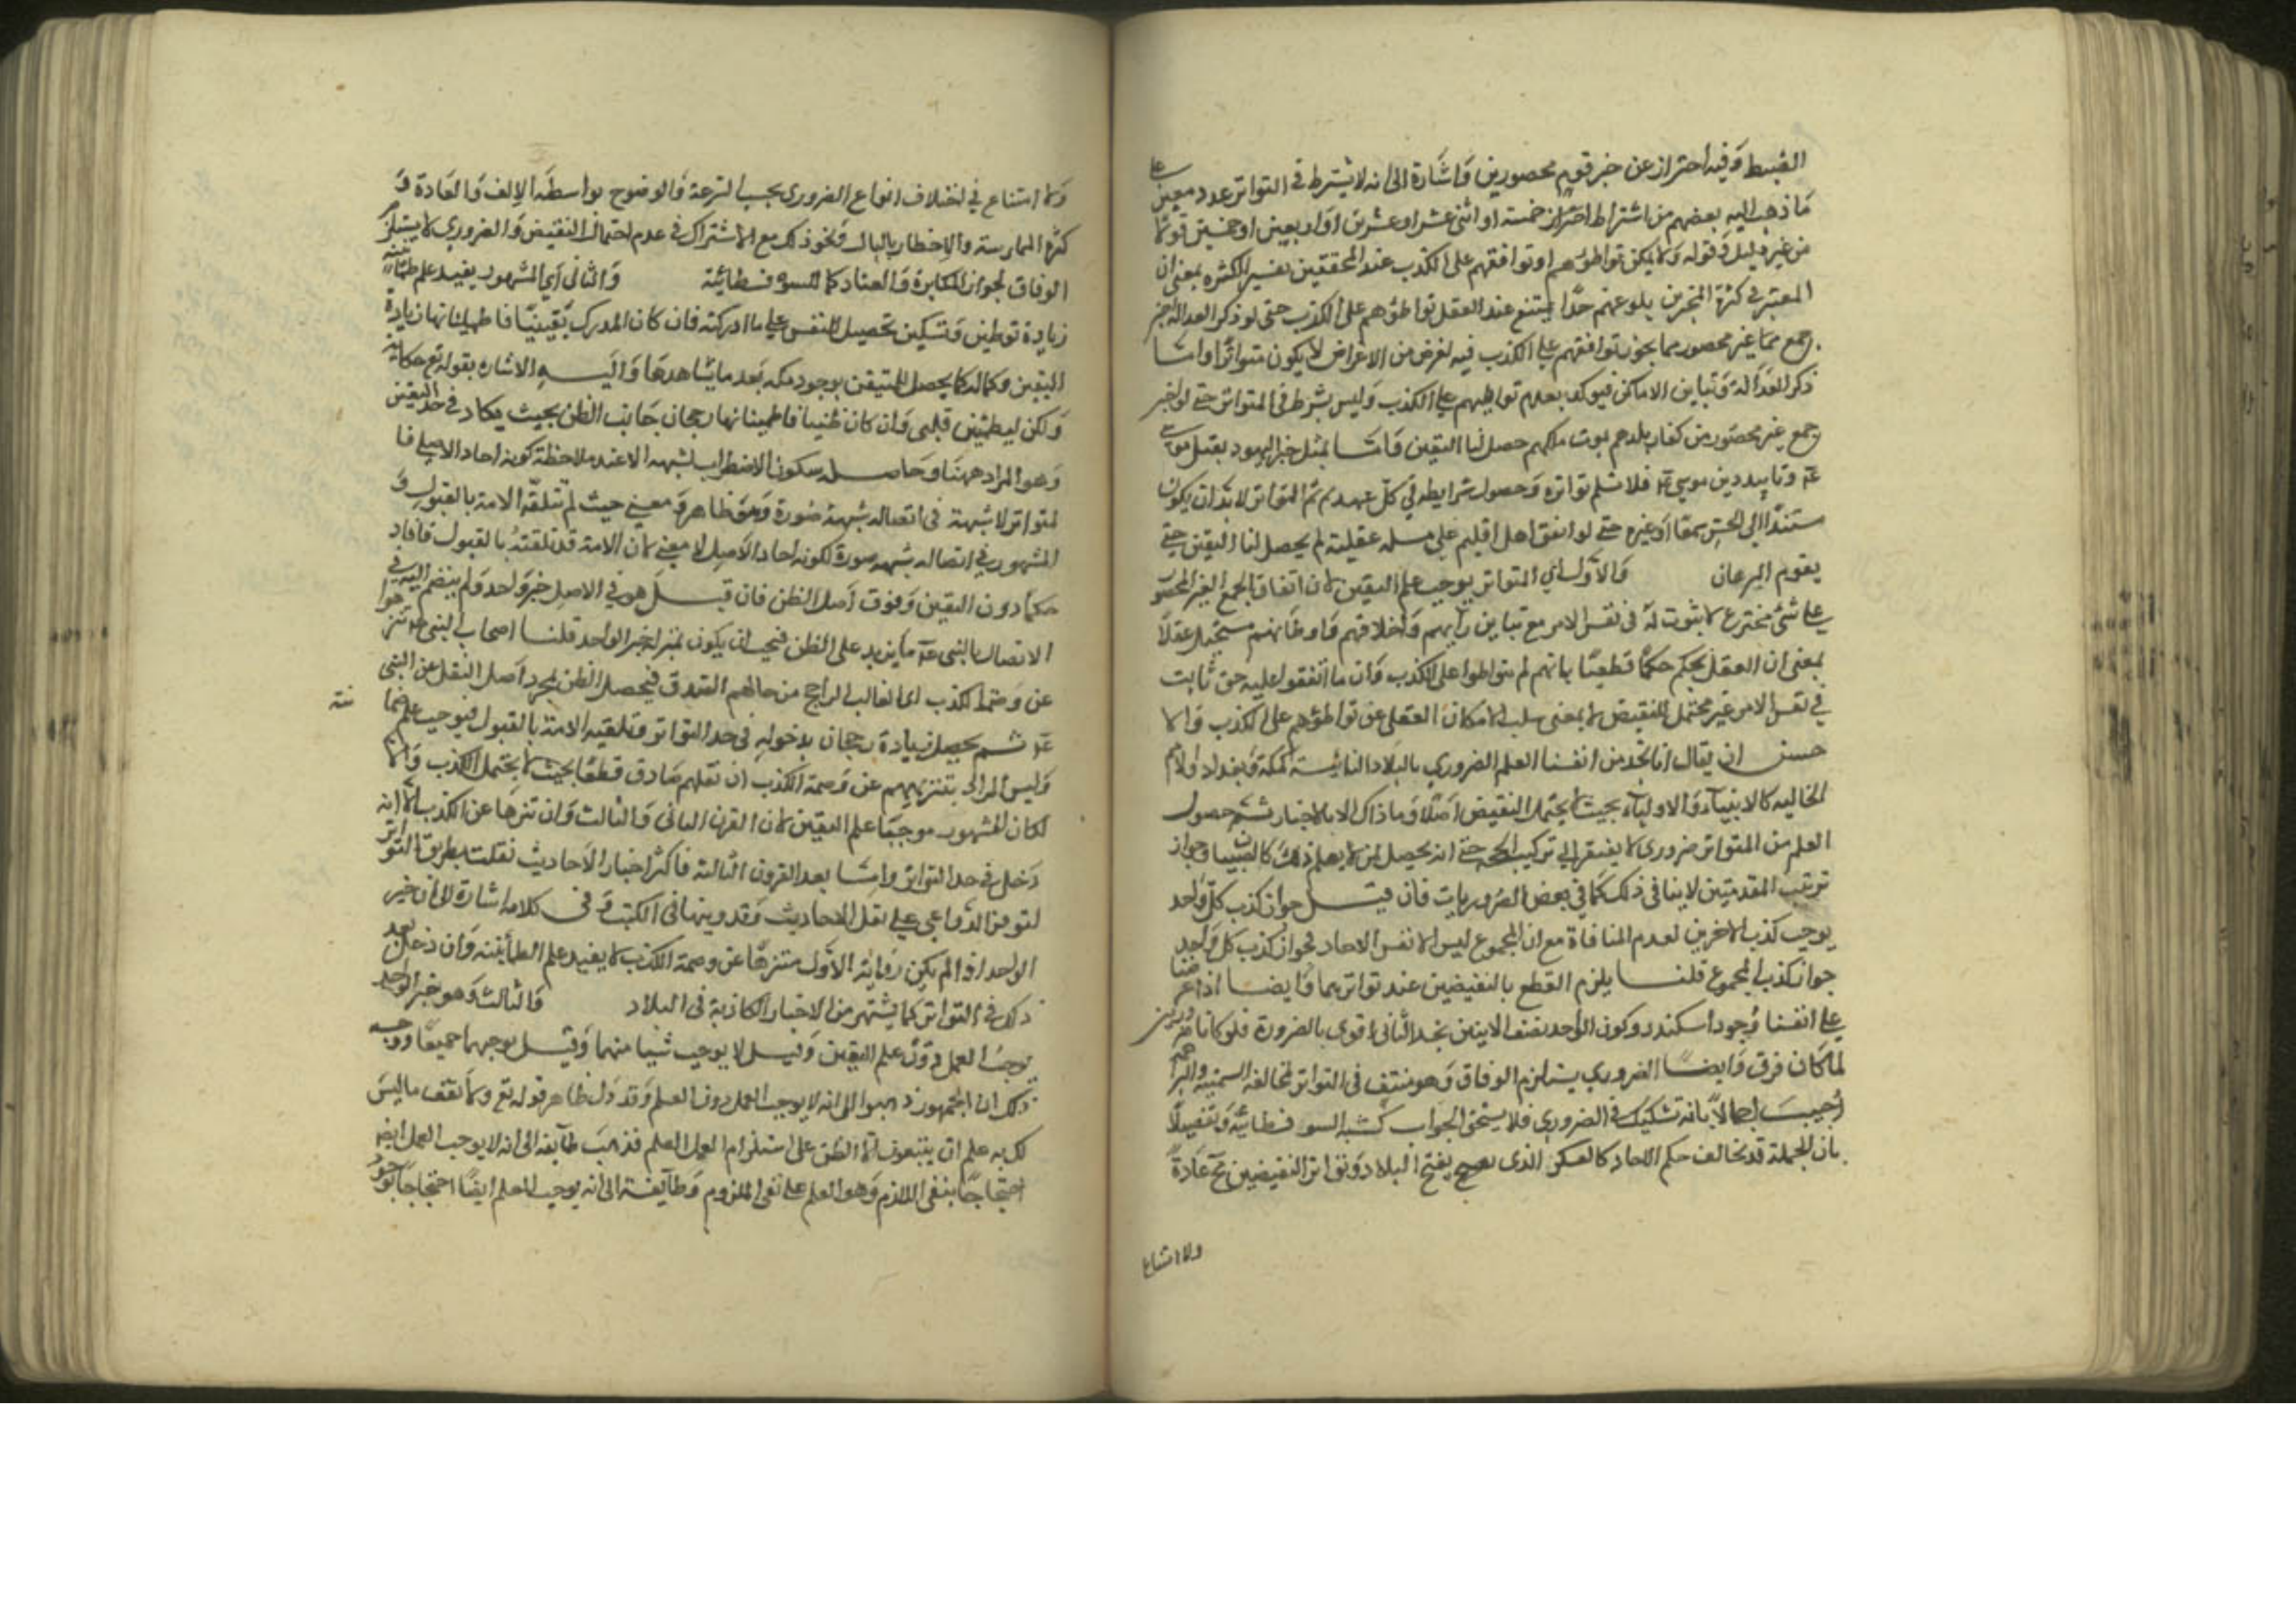 الضبط وفيه احتراز عن خبر قوم محصورين واشارة الى انه لا يشترط في التواتر عدد معين على
ما ذهب اليه بعضهم من اشتراط خمسة او اثنى عشر او عشرين او اربعين او خمسين قولا
من غير دليل وقوله ولا يمكن تواطؤهم او توافقهم على الكذب عند المحققين تفسير للكثرة بمعنى ان
المعتبر في كثرة المخبرين بلوغهم حدا يمتنع عند العقل تواطؤهم على الكذب حتى لو
جمع غير محصور بما يجوز توافقهم على الكذب فيه لغرض من الاغراض لا يكون متواترا واما
ذكر العدالة وتباين الاماكن فيؤكد بعدم تواطيهم على الكذب وليس بشرط في المتواتر حتى لو اخبر
جمع غير محصور من كفار بلدهم بموت ملكهم حصل لنا اليقين واما مثل خبر اليهود بقتل
وتاييد دين موسى عم فلا نسلم تواتره وحصول شرايطه في كل عهد ثم المتواتر لا بد ان يكون
مستندا الى الحس سمعا او غيره حتى لو اتفق اهل اقليم على مسله عقلية لم يحصل لنا اليقين حتى
يقوم البرهان والاول اي المتواتر يوجب علم اليقين لان اتفاق الجمع الغير المحصور
على شئ مخترع لا ثبوت له في نفس الامر مع تباين رأيهم واخلاقهم واوطانهم مستحيل عقلا
بمعنى ان العقل يحكم حكما قطعيا بانهم لم يتواطوا على الكذب وان ما اتفقوا عليه حق ثابت
في نفس الامر غير محتمل للنقيض لا بمعنى سلب الامكان العقلي عن تواطؤهم على الكذب والا
حسن ان يقال انا نجد من انفسنا العلم الضروري بالبلاد النائية كمكة وبغداد والامم
الخاليه كالانبياء والاولياء بحيث لا يحتمل النقيض اصلا وما ذاك الا بالاخبار ثم حصول
العلم من المتواتر ضروري لا يفتقر الى تركيب الحجه حتى انه يحصل لمن لا يعلم ذلك كالصبيان وجواز
ترتيب المقدمتين لا ينافي ذلك كما في بعض الضروريات فان قيل جواز كذب كل واحد
يوجب كذب الاخرين لعدم المنافاة مع ان المجموع ليس الا نفس الاحاد فجواز كذب كل واحد
جواز كذب المجموع قلنا يلزم القطع بالنقيضين عند تواترهما وايضا اذا عرضنا
على انفسنا وجود اسكندر وكون الواحد نصف الاثنين نجد الثاني اقوى بالضرورة فلو كانا ضروريين
لما كان فرق وايضا الضروري يستلزم الوفاق وهو منتف في التواتر لمخالفه السمنيه والبراهمه
اجيب اجمالا بانه تشكيك في الضروري فلا يستحق الجواب كشبه السوفسطائية وتفصيلا
بان الجملة قد تخالف حكم الاحاد كالعسكر الذي يفتح البلاد وتواتر النقيضين مح عادة
ولا امتناع
ولا امتناع في اختلاف انواع الضروري بحسب السرعة والوضوح بواسطة الالف والعادة و
كثرة الممارسة والاخطار بالبال ونحو ذلك مع الاشتراك في عدم احتمال النقيض والضروري لا يستلزم
الوفاق لجواز المكابرة والعناد كما للسوفسطائية والثاني اي المشهور يفيد علم طمانينه
زيادة توطين وتسكين تحصيل للنفس على ما ادركته فان كان المدرك يقينيا فاطمينانها زيادة
اليقين وكماله كما يحصل للمتيقن بوجود مكه بعد ما يشاهدها واليه الاشاره بقوله تع حكاية
ولكن ليطمئن قلبي وان كان ظنيا فاطمينانها رجحان جانب الظن بحيث يكاد في حد اليقين
وهو المراد ههنا وحاصله سكون الاضطراب لشبهه الا عند ملاحظة كونه احاد الاصل فا
لمتواتر لا شبهة في اتصاله شبهة صورة وهو ظاهر ومعنى حيث لم تتلقه الامة بالقبول و
المشهور في اتصاله شبهه صورة لكونه احاد الاصل لا معنى لان الامة قد تلقته بالقبول فافاد
حكما دون اليقين وفوق اصل الظن فان قيل هو في الاصل خبر واحد ولم ينضم اليه في
الاتصال بالنبي عم ما يزيد على الظن فيجب ان يكون بمنزلة خبر الواحد قلنا اصحاب النبي عم تنزهوا
عن وصمة الكذب اي الغالب الراجح من حالهم الصدق فيحصل الظن بمجرد اصل النقل عن النبي
عم ثم يحصل زيادة رجحان بدخوله في حد التواتر وتلقيه الامة بالقبول فيوجب علم
وليس المراد بتنزيههم عن وصمة الكذب ان نقلهم صادق قطعا بحيث لا يحتمل الكذب والا
لكان المشهور موجبا علم اليقين لان القرن الثاني والثالث وان تنزها عن الكذب الا انه
دخل في حد التواتر واما بعد القرون الثالثه فاكثر اخبار الاحاديث نقلت بطريق التواتر
لتوفر الدواعي على نقل الاحاديث وتدوينها في الكتب وفي كلامه اشارة الى ان خبر
الواحد اذا لم يكن رواية الاول متنزها عن وصمة الكذب لا يفيد علم الطمأنينه وان دخل بعد
ذلك في التواتر كما يشتهر من الاخبار الكاذبة في البلاد والثالث وهو خبر الواحد
يوجب العمل دون علم اليقين وقيل لا يوجب شيا منهما وقيل يوجبهما جميعا ووجه
ذلك ان الجمهور ذهبوا الى انه لا يوجب العمل دون العلم وقد دل ظاهر قوله تع ولا تقف ما ليس
لك به علم ان يتبعون الا الظن على استلزام العمل العلم فذهب طايفه الى انه لا يوجب العمل ايض
احتجاجا بنفي اللازم وهو العلم على نفي الملزوم وطايفة الى انه يوجب العلم ايضا احتجاجا بوجود